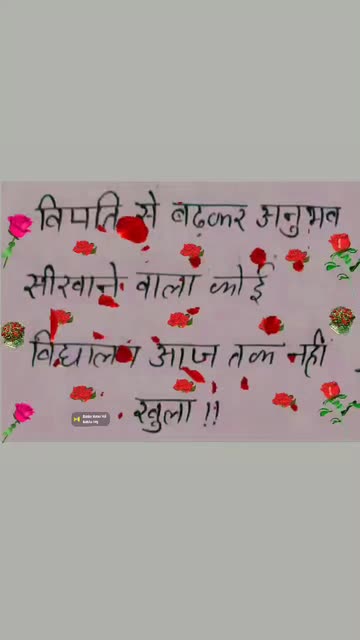 विपति से बढ़कर अनुभव
सीखाने वाला कोई
विद्यालय आज तक नही
खुला !!